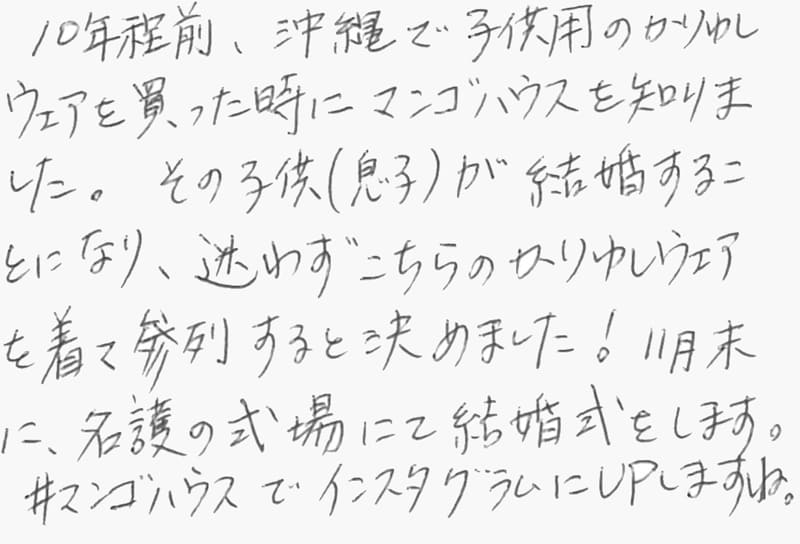 10年程前、沖縄で子供用のかりゆし
ウェアを買った時にマンゴハウスを知りま
した。その子供(息子)が結婚するこ
とになり、迷わずこちらのかりゆしウェア
を着て参列すると決めました!11月末
に、名護の式場にて結婚式をします。
#マンゴハウスでインスタグラムにUPしますね。